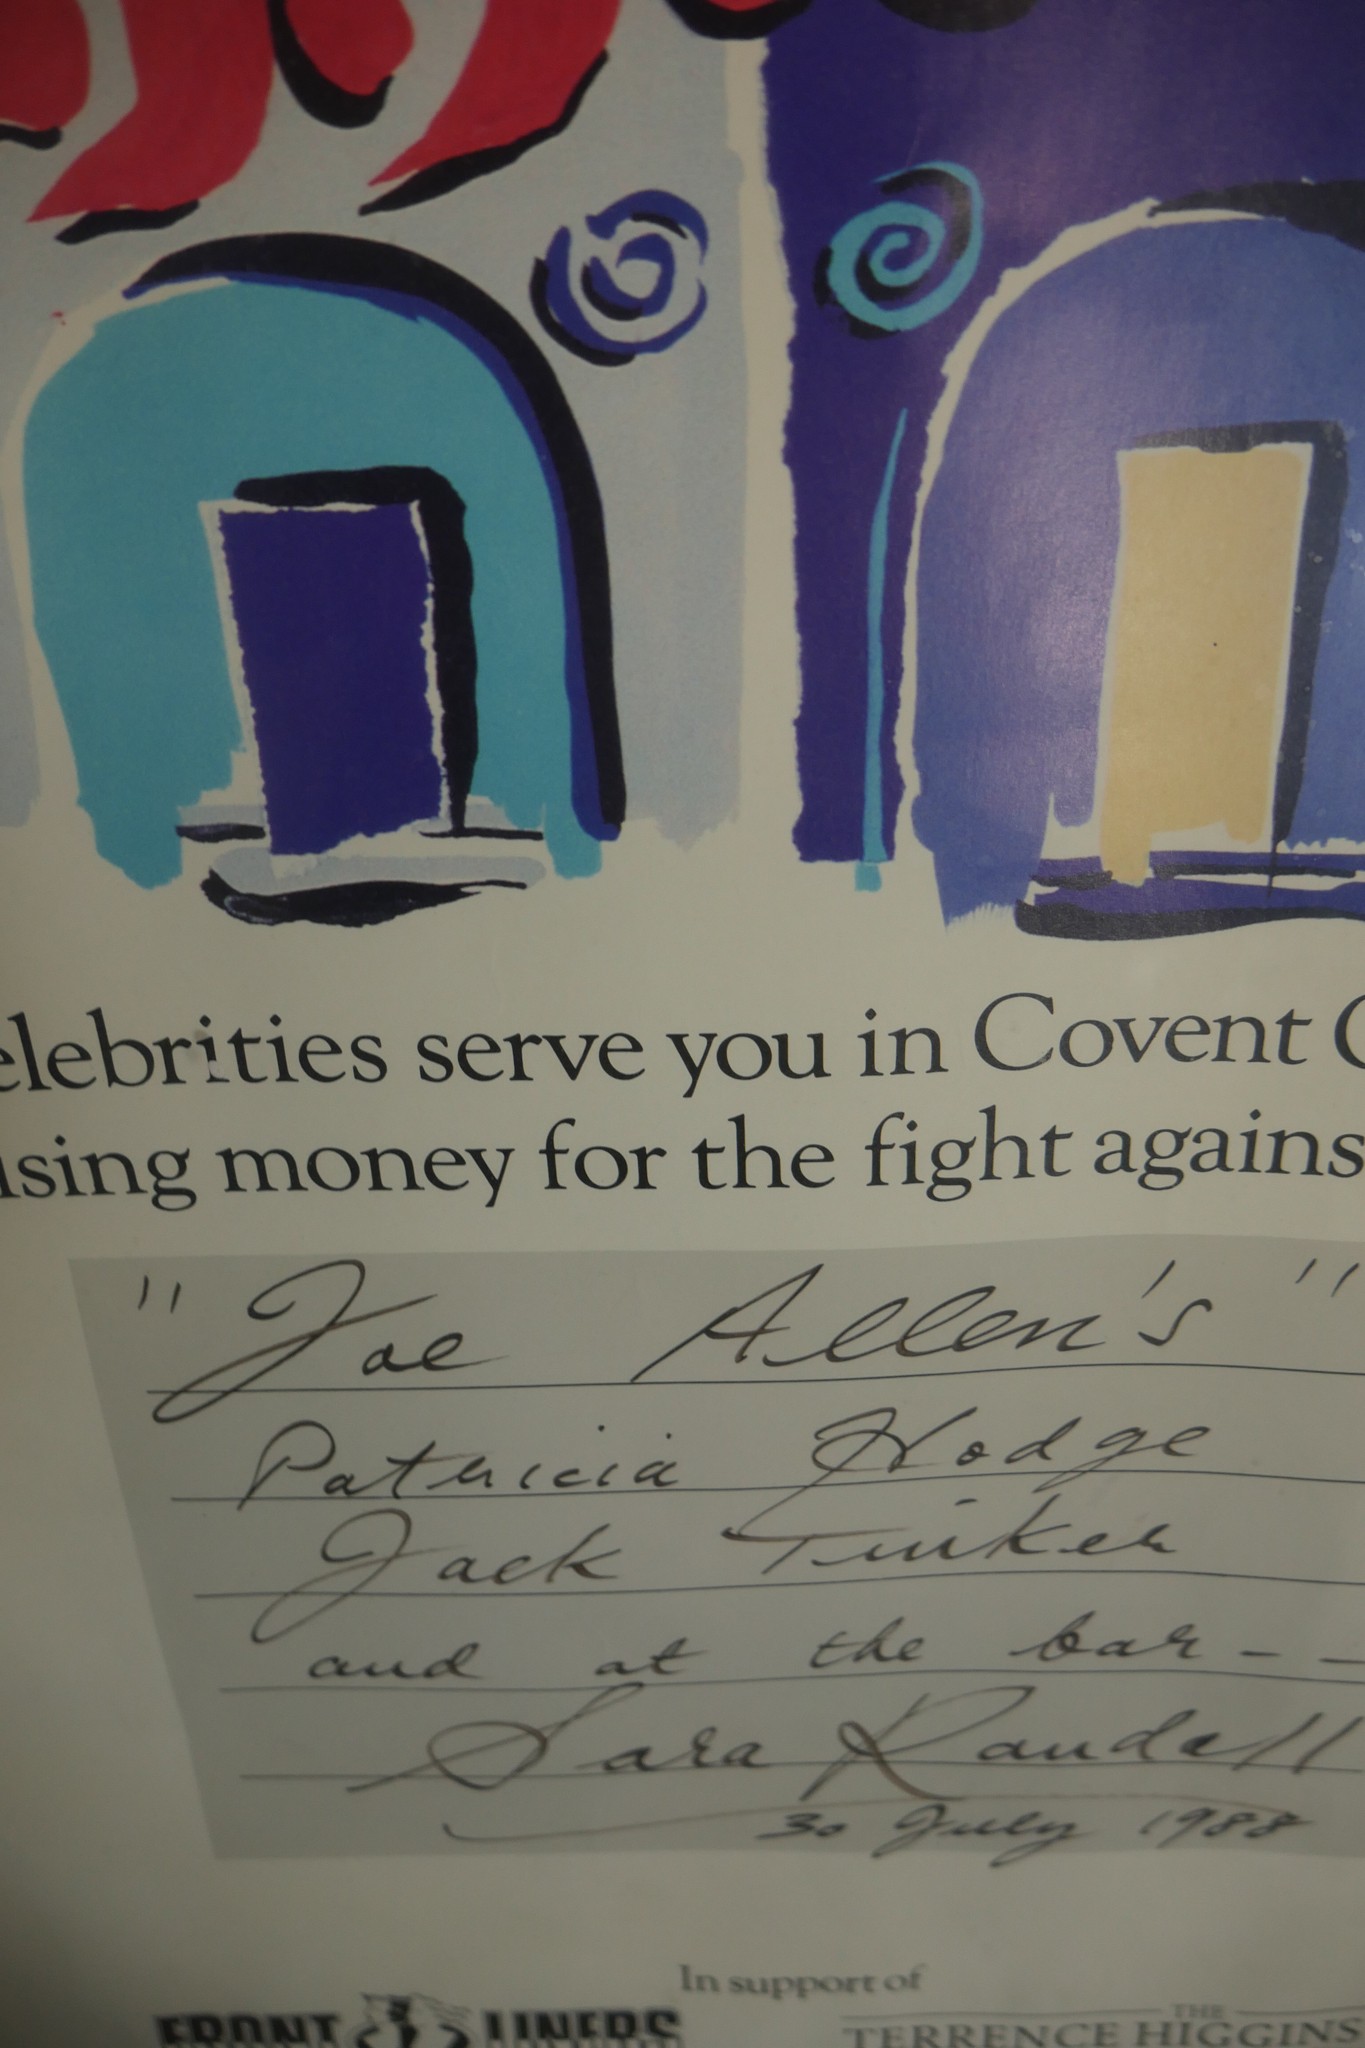 elebrities serve you in Covent G
ising money for the fight agains
"Joe Allen's"
Patricia Hodge
Jack Tinker
and at the bar - -
Sara Randall
30 July 1988
In support of
FRONT LINERS
THE
TERRENCE HIGGINS